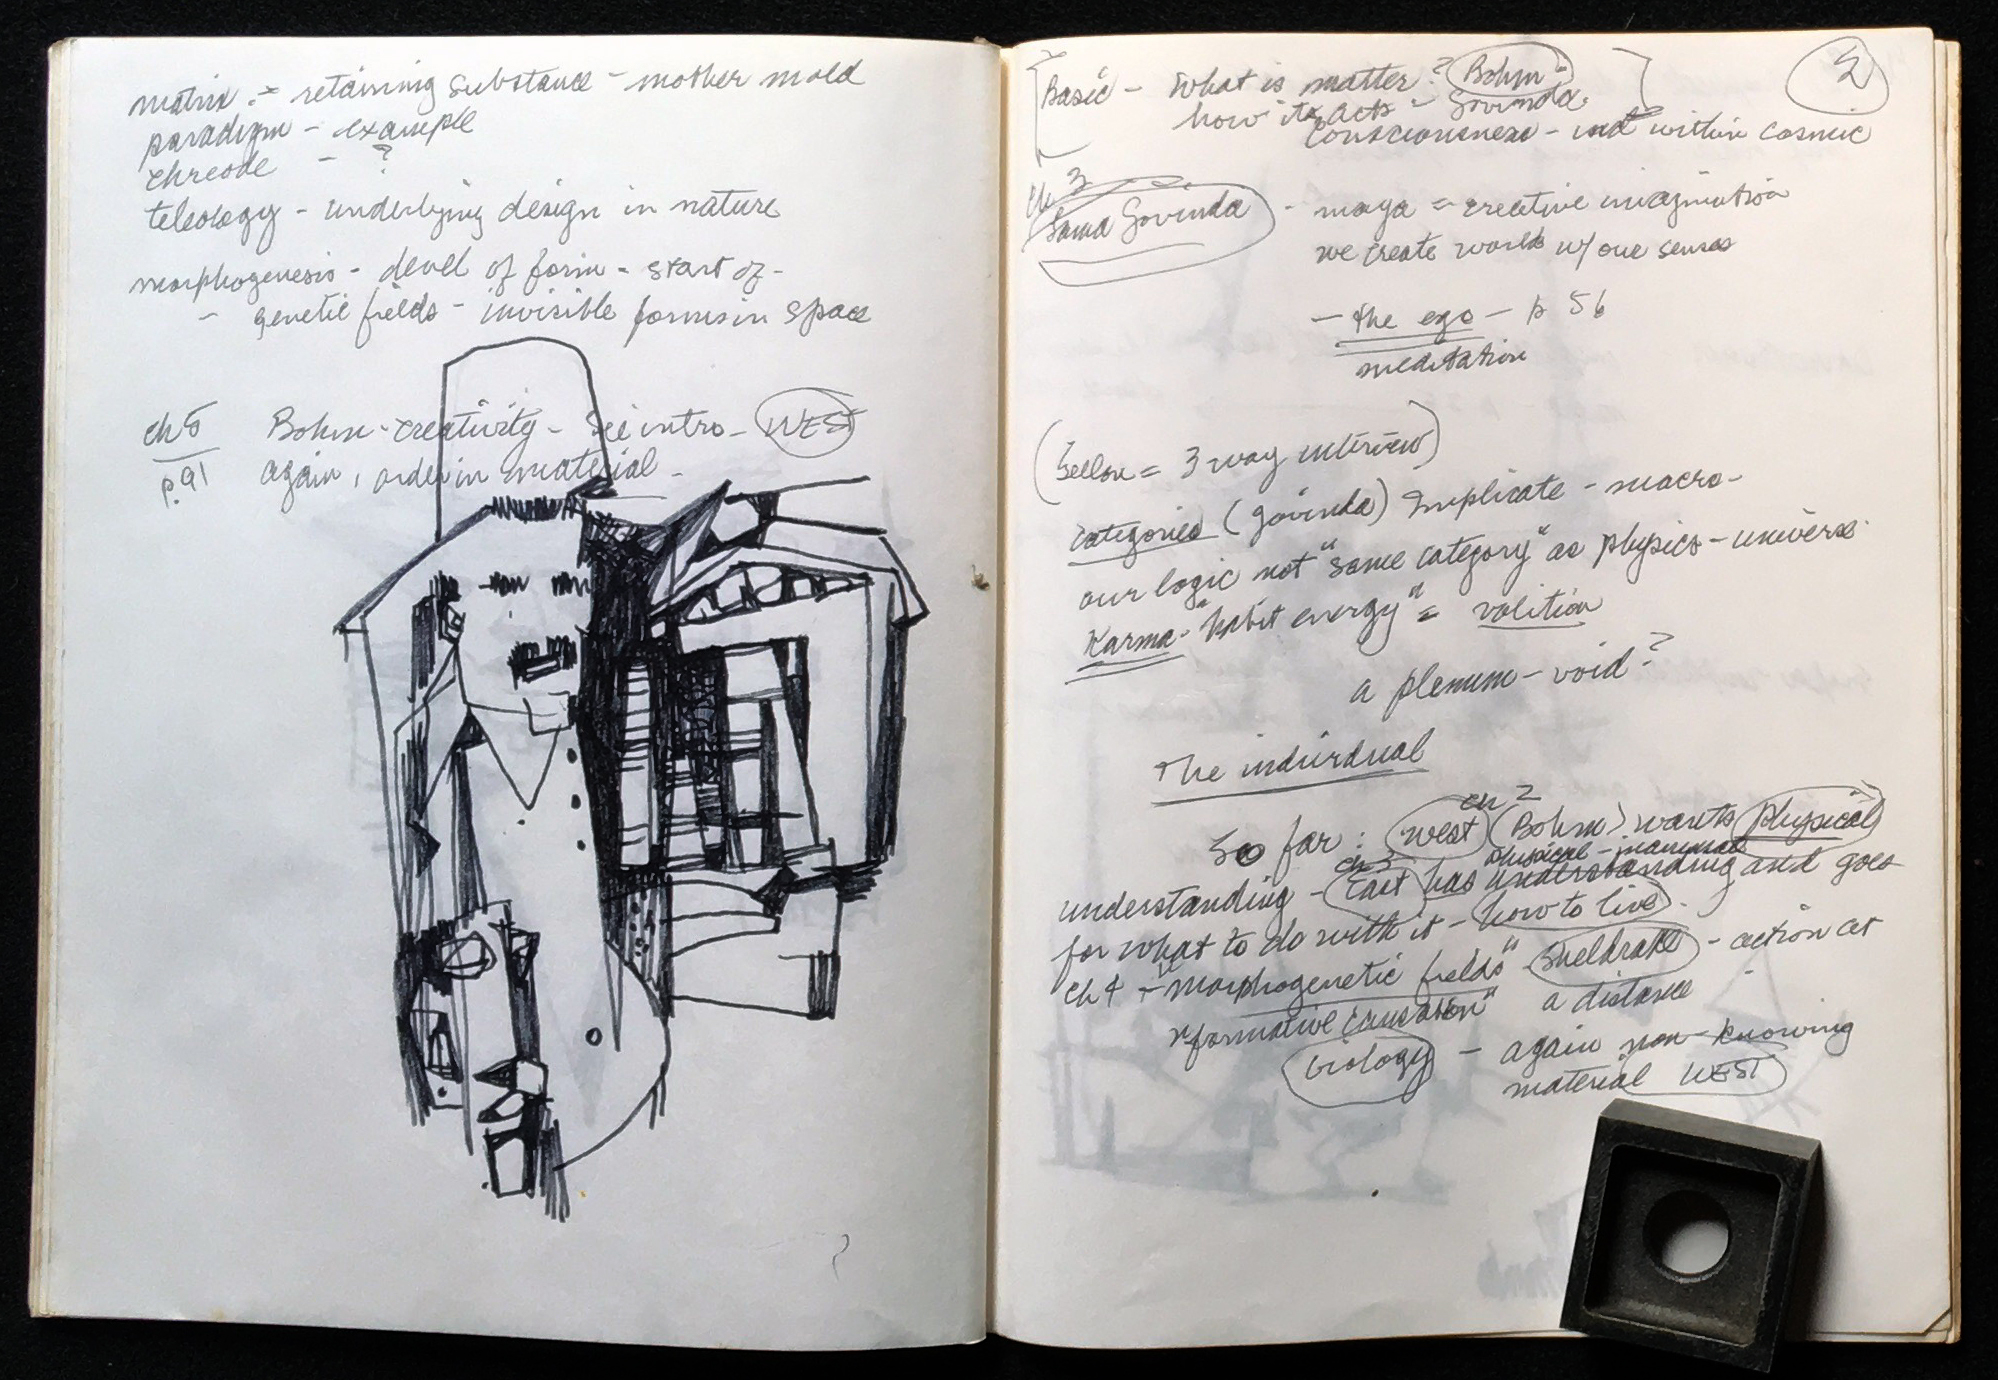 matrix - retaining substance - mother mold
paradigm - example
chreode - ?
teleology - underlying design in nature
morphogenesis - devel of form - start of -
- genetic fields - invisible forms in space
ch 5 Bohm - creativity - See intro - WEST
p. 91 again, order in material -
2
Basic - What is matter? Bohm -
how it acts - Govinda
consciousness - within cosmic
Ch 3
Lama Govinda - maya = creative imagination
we create world w/ our senses
- the ego - p 56
meditation
( = 3 way interview)
Categories (Govinda) Implicate - macro -
our logic not "same category" as physics - universe
Karma - "habit energy" = volition
a plenum - void?
The individual
ch 2
So far: West (Bohm) wants physical
ch 3 physical -
understanding - East has understanding and goes
for what to do with it - how to live.
ch 4 - "morphogenetic fields" Sheldrake - action at
"formative causation" a distance
biology - again non-knowing
material WEST